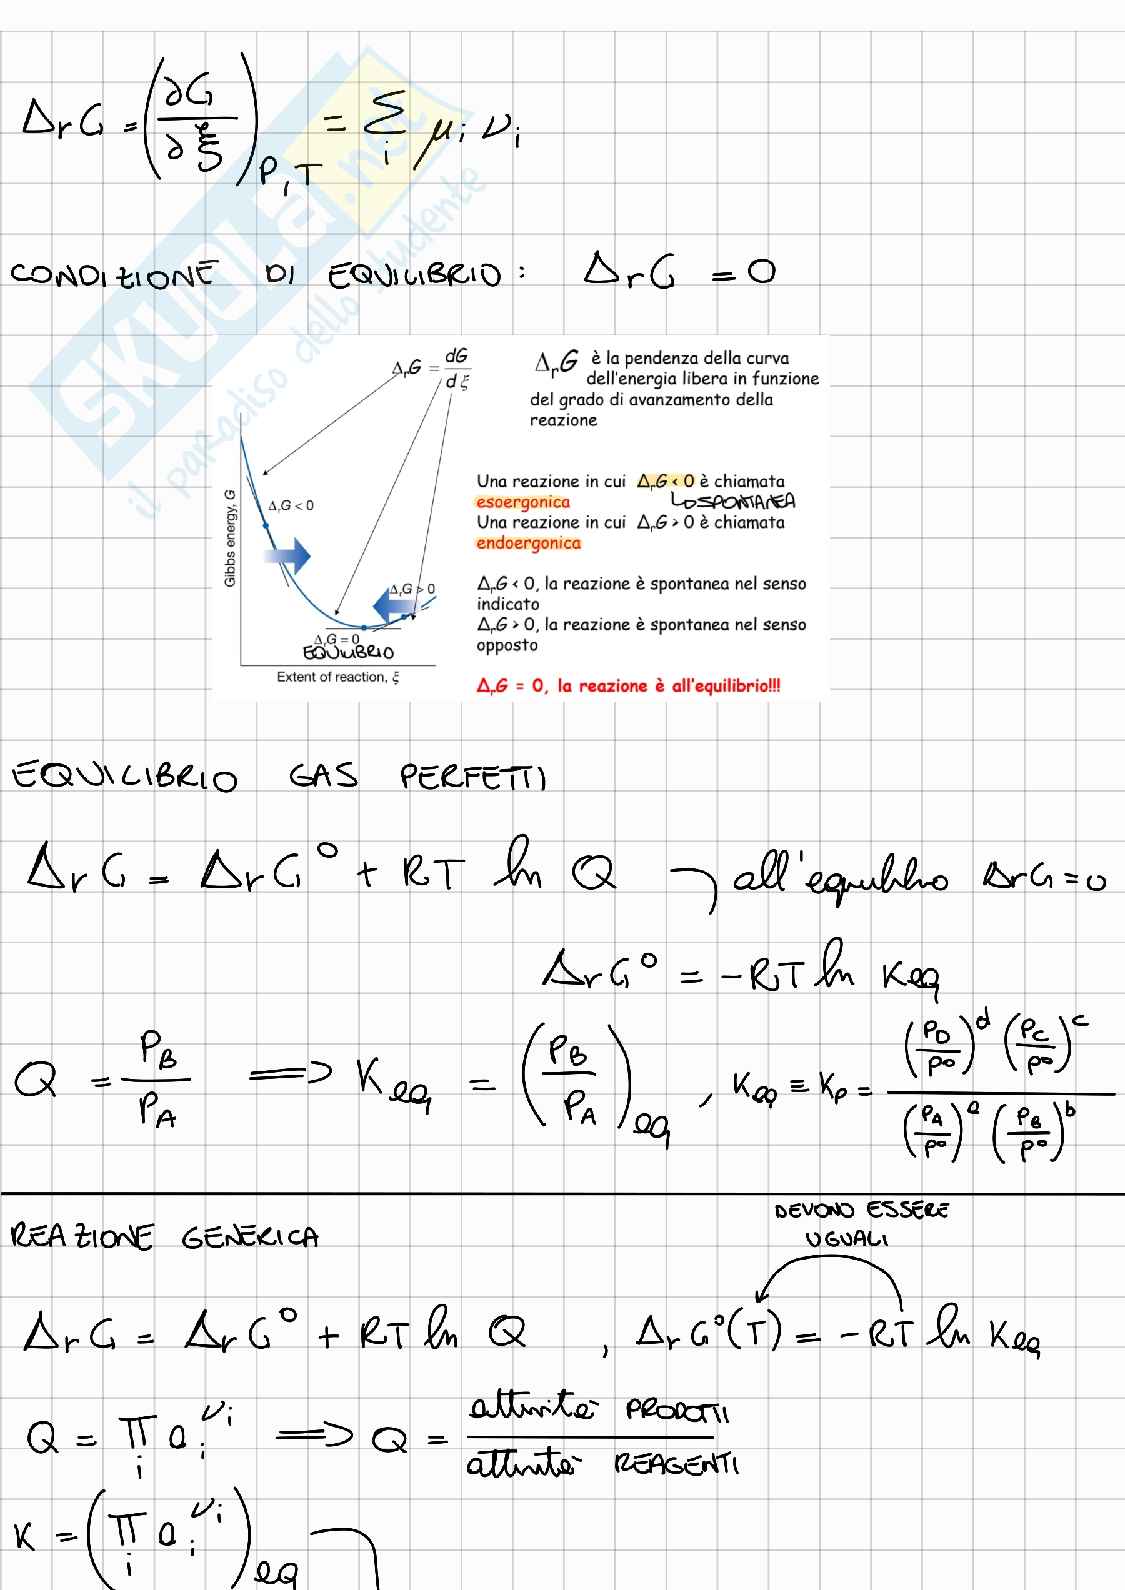 ΔrG = (∂G/∂ξ)P,T = Σi μi νi
SKUOLA.net
il paradiso dello studente
CONDIZIONE DI EQUILIBRIO: ΔrG = 0
ΔrG = dG/dξ
ΔrG è la pendenza della curva
dell'energia libera in funzione
del grado di avanzamento della
reazione
Gibbs energy, G
ΔrG < 0
ΔrG > 0
ΔrG = 0
EQUILIBRIO
Extent of reaction, ξ
Una reazione in cui ΔrG < 0 è chiamata
esoergonica ↳ SPONTANEA
Una reazione in cui ΔrG > 0 è chiamata
endoergonica
ΔrG < 0, la reazione è spontanea nel senso
indicato
ΔrG > 0, la reazione è spontanea nel senso
opposto
ΔrG = 0, la reazione è all'equilibrio!!!
EQUILIBRIO GAS PERFETTI
ΔrG = ΔrG° + RT ln Q → all'equilibrio ΔrG = 0
ΔrG° = -RT ln Keq
Q = PB/PA ⟹ Keq = (PB/PA)eq , Keq ≡ Kp = (PD/P°)^d (PC/P°)^c / (PA/P°)^a (PB/P°)^b
REAZIONE GENERICA
DEVONO ESSERE
UGUALI
ΔrG = ΔrG° + RT ln Q , ΔrG°(T) = -RT ln Keq
Q = Πi ai^νi ⟹ Q = attività PRODOTTI / attività REAGENTI
K = (Πi ai^νi)eq